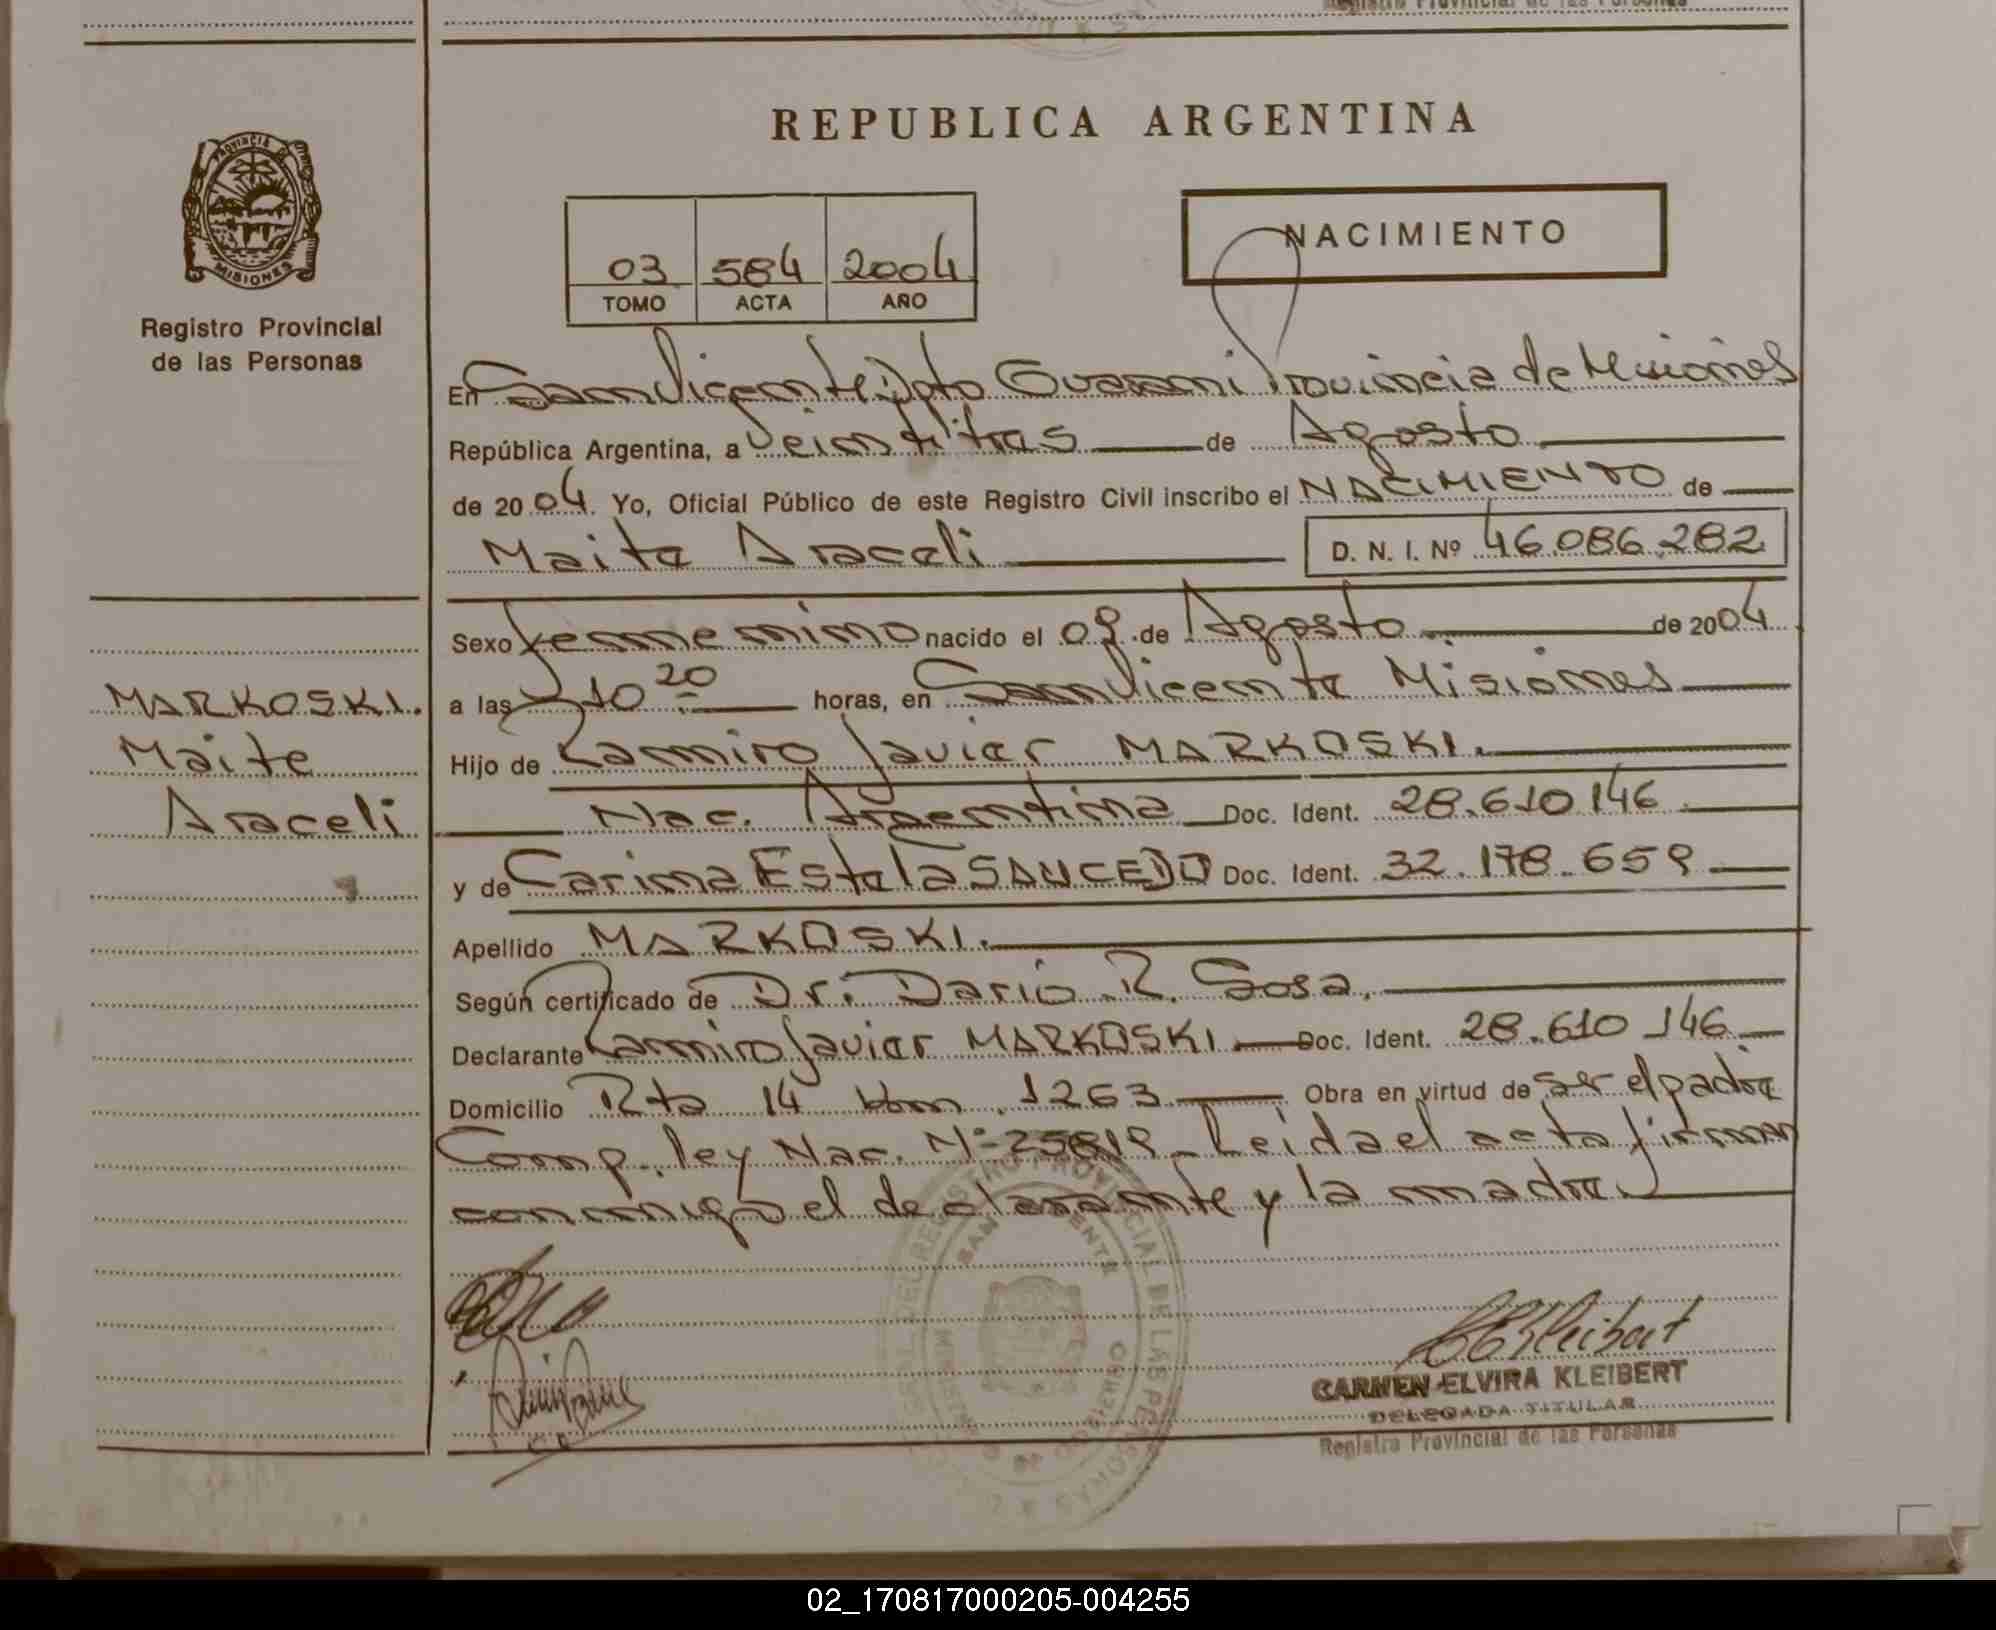 Registro Provincial de las Personas
REPUBLICA ARGENTINA
PROVINCIA DE
MISIONES
Registro Provincial
de las Personas
NACIMIENTO
03 584 2004
TOMO ACTA AÑO
En San Vicente Dpto Guarani Provincia de Misiones
República Argentina, a Veintitres de Agosto
de 2004. Yo, Oficial Público de este Registro Civil inscribo el NACIMIENTO de
Maite Araceli D. N. I. Nº 46.086.282
Sexo femenino nacido el 09 de Agosto de 2004
a las 10 20 horas, en San Vicente Misiones
Hijo de Ramiro Javier MARKOSKI.
Nac. Argentina Doc. Ident. 28.610.146
y de Carina Estela SAUCEDO Doc. Ident. 32.178.659
Apellido MARKOSKI.
Según certificado de Dr. Dario R. Sosa.
Declarante Ramiro Javier MARKOSKI Doc. Ident. 28.610.146
Domicilio Rta 14 km. 1263 Obra en virtud de ser el padre
Comp. ley Nac. Nº 25819 - Leida el acta firman
conmigo el declarante y la madre.
MARKOSKI.
Maite
Araceli
CARMEN ELVIRA KLEIBERT
DELEGADA TITULAR
Registro Provincial de las Personas
02_170817000205-004255